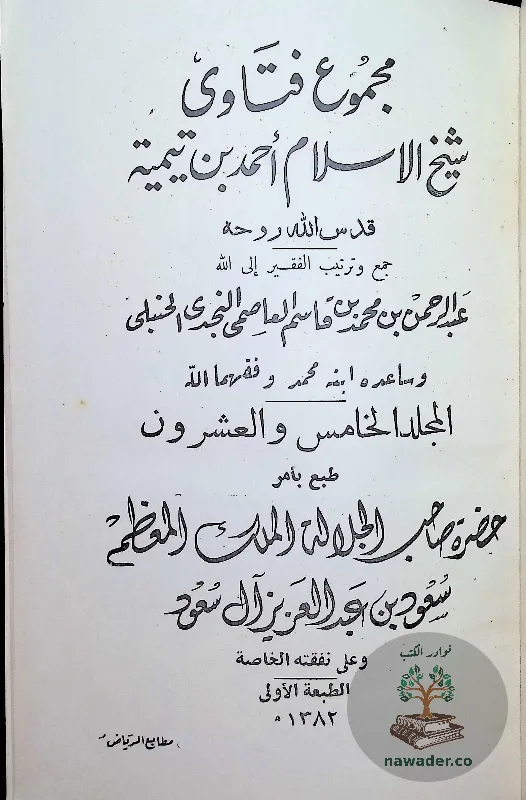 مجموع فتاوى
شيخ الاسلام أحمد بن تيمية
قدس الله روحه
جمع وترتيب الفقير إلى الله
عبد الرحمن بن محمد بن قاسم العاصمى النجدى الحنبلى
وساعده ابنه محمد وفقهما الله
المجلد الخامس والعشرون
طبع بأمر
حضرة صاحب الجلالة الملك المعظم
سعود بن عبد العزيز آل سعود
وعلى نفقته الخاصة
الطبعة الأولى
١٣٨٢ ه
مطابع الرياض
نوادر الكتب
nawader.co